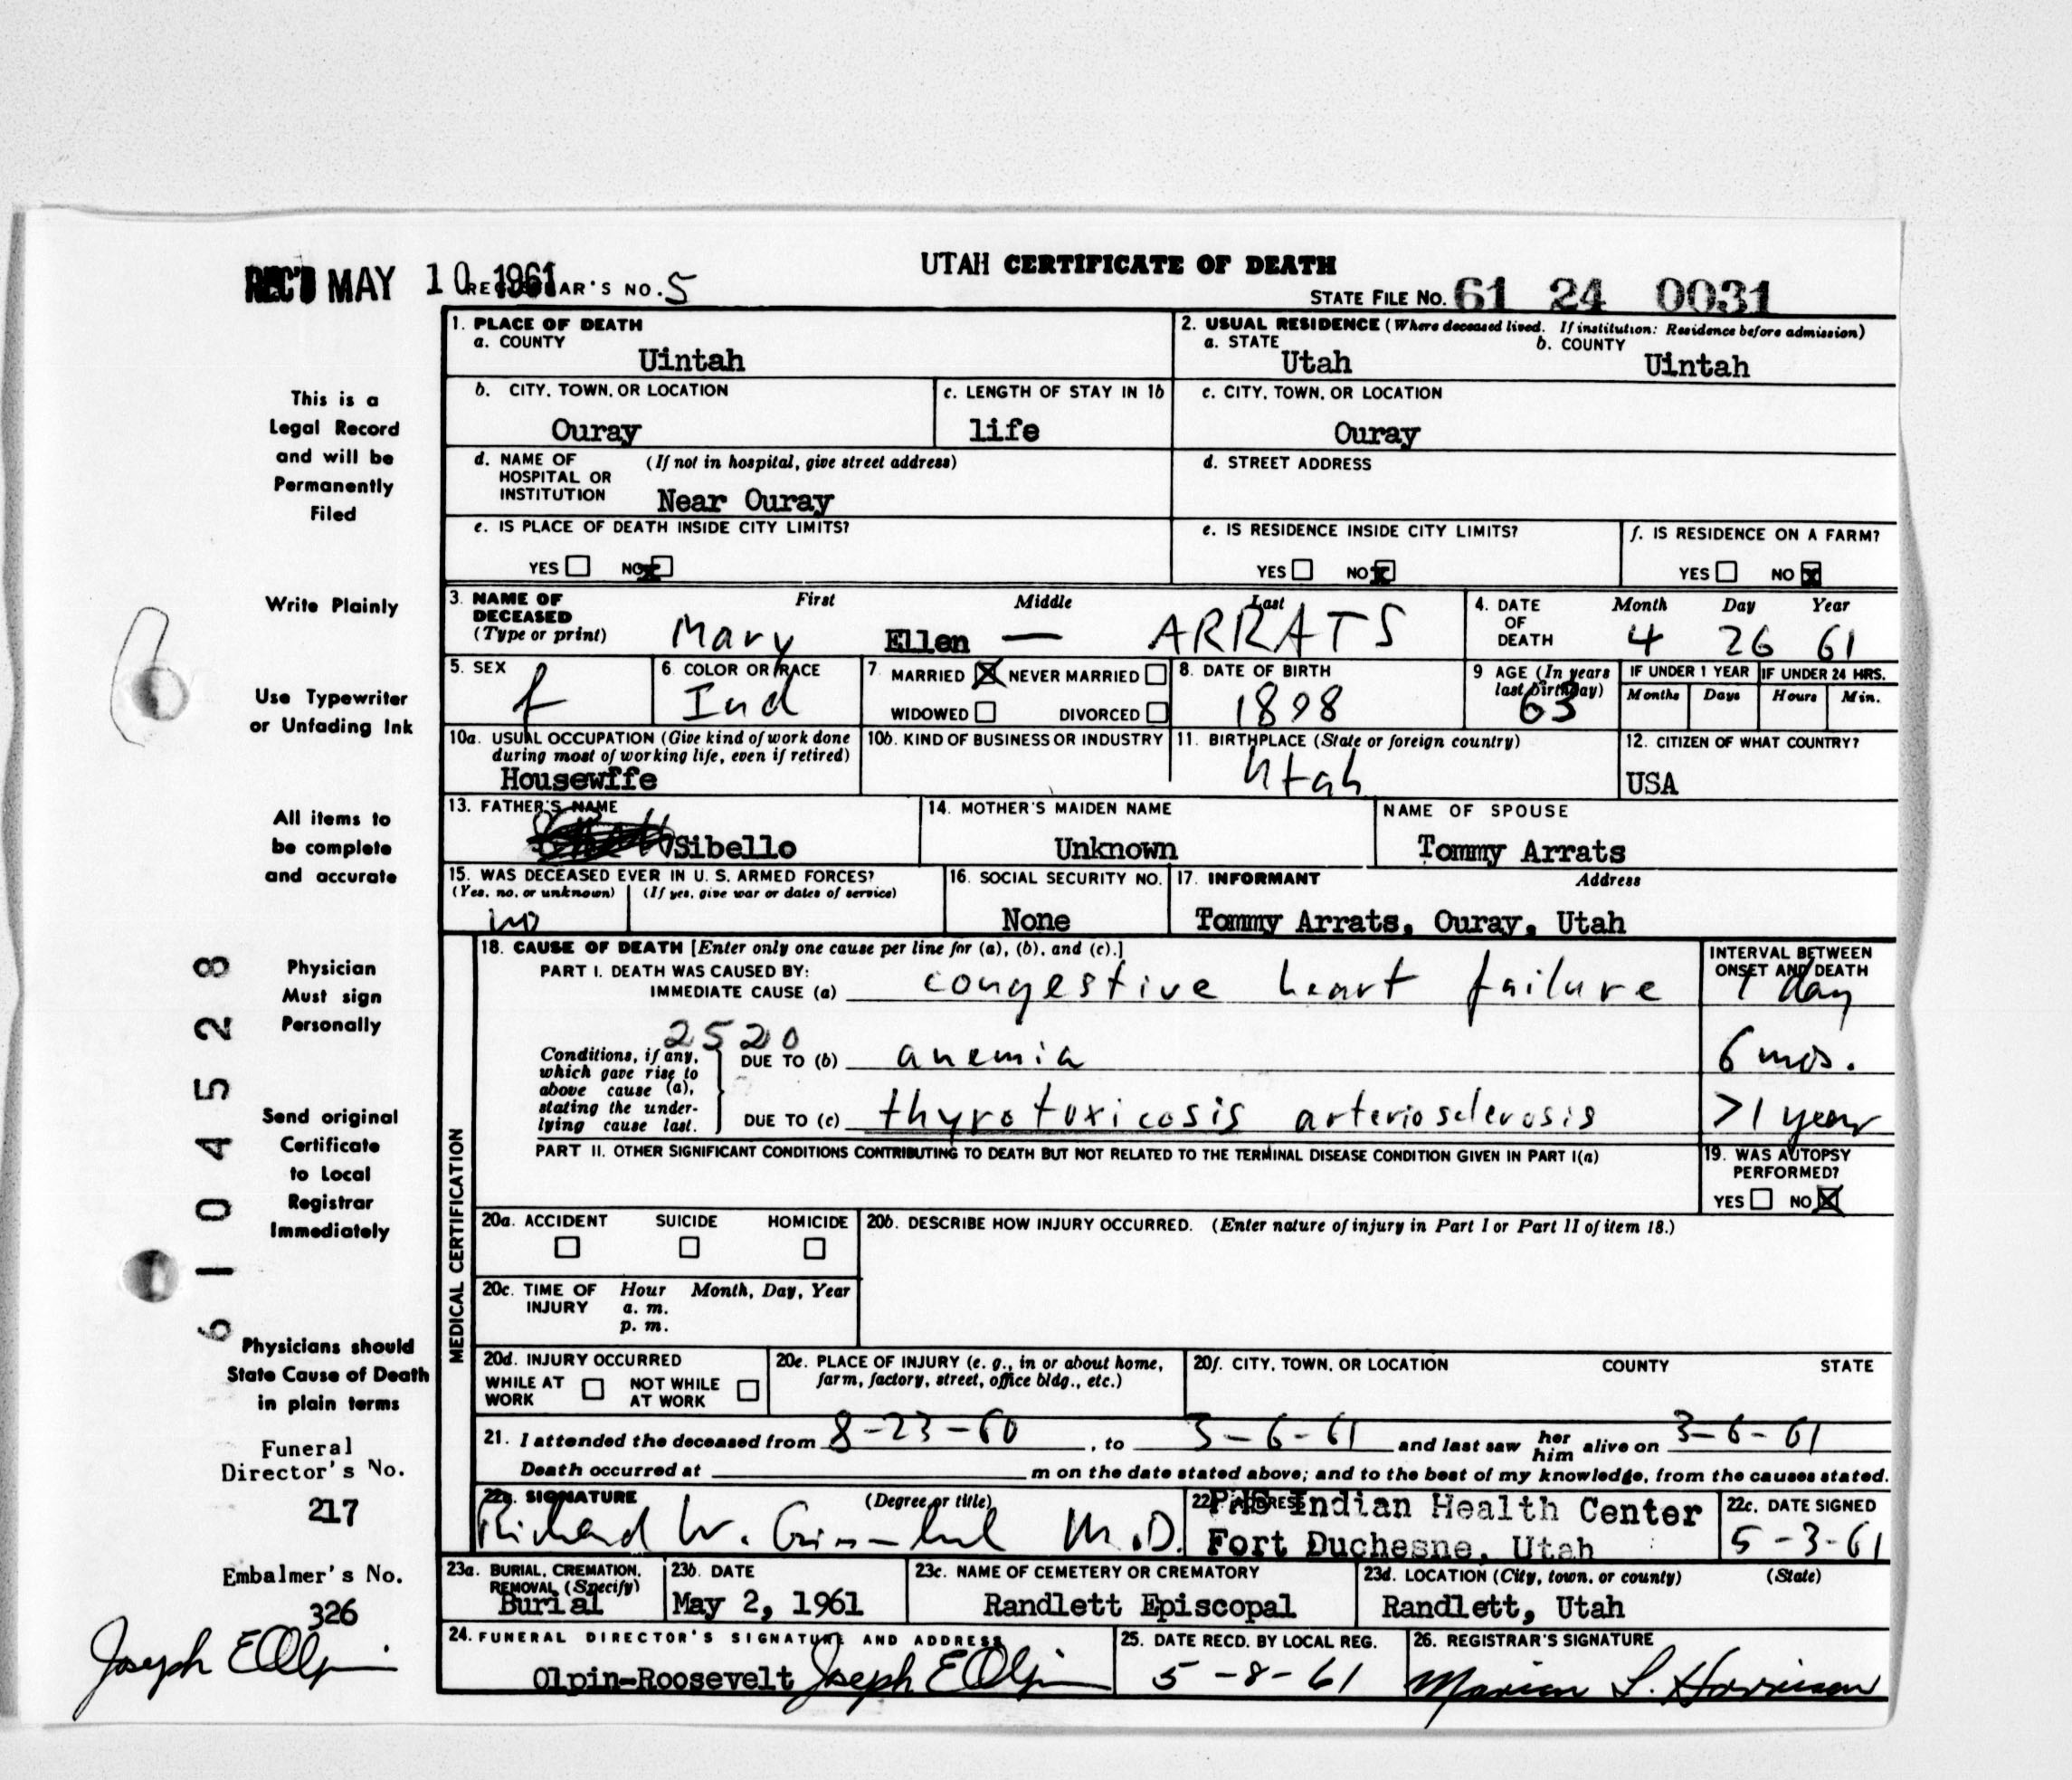 REC'D MAY 10 1961
REGISTRAR'S NO. 5
UTAH CERTIFICATE OF DEATH
STATE FILE NO. 61 24 0031
This is a
Legal Record
and will be
Permanently
Filed
Write Plainly
Use Typewriter
or Unfading Ink
All items to
be complete
and accurate
Physician
Must sign
Personally
Send original
Certificate
to Local
Registrar
Immediately
Physicians should
State Cause of Death
in plain terms
Funeral
Director's No.
217
Embalmer's No.
326
Joseph E Olpin
6104528
6
1. PLACE OF DEATH
a. COUNTY
Uintah
2. USUAL RESIDENCE (Where deceased lived. If institution: Residence before admission)
a. STATE b. COUNTY
Utah Uintah
b. CITY, TOWN, OR LOCATION
Ouray
c. LENGTH OF STAY IN 1b
life
c. CITY, TOWN, OR LOCATION
Ouray
d. NAME OF (If not in hospital, give street address)
HOSPITAL OR
INSTITUTION Near Ouray
d. STREET ADDRESS
e. IS PLACE OF DEATH INSIDE CITY LIMITS?
YES NO X
e. IS RESIDENCE INSIDE CITY LIMITS?
YES NO X
f. IS RESIDENCE ON A FARM?
YES NO X
3. NAME OF First Middle Last
DECEASED
(Type or print) Mary Ellen — ARRATS
4. DATE Month Day Year
OF
DEATH 4 26 61
5. SEX
f
6. COLOR OR RACE
Ind
7 MARRIED X NEVER MARRIED
WIDOWED DIVORCED
8. DATE OF BIRTH
1898
9 AGE (In years
last birthday)
63
IF UNDER 1 YEAR
Months Days
IF UNDER 24 HRS.
Hours Min.
10a. USUAL OCCUPATION (Give kind of work done
during most of working life, even if retired)
Housewffe
10b. KIND OF BUSINESS OR INDUSTRY
11. BIRTHPLACE (State or foreign country)
Utah
12. CITIZEN OF WHAT COUNTRY?
USA
13. FATHER'S NAME
Sibello
14. MOTHER'S MAIDEN NAME
Unknown
NAME OF SPOUSE
Tommy Arrats
15. WAS DECEASED EVER IN U. S. ARMED FORCES?
(Yes, no, or unknown) (If yes, give war or dates of service)
no
16. SOCIAL SECURITY NO.
None
17. INFORMANT Address
Tommy Arrats, Ouray, Utah
MEDICAL CERTIFICATION
18. CAUSE OF DEATH [Enter only one cause per line for (a), (b), and (c).]
PART I. DEATH WAS CAUSED BY:
IMMEDIATE CAUSE (a) congestive heart failure
INTERVAL BETWEEN
ONSET AND DEATH
1 day
2520
Conditions, if any,
which gave rise to
above cause (a),
stating the under-
lying cause last.
DUE TO (b) anemia 6 mos.
DUE TO (c) thyrotoxicosis arteriosclerosis >1 year
PART II. OTHER SIGNIFICANT CONDITIONS CONTRIBUTING TO DEATH BUT NOT RELATED TO THE TERMINAL DISEASE CONDITION GIVEN IN PART I(a)
19. WAS AUTOPSY
PERFORMED?
YES NO X
20a. ACCIDENT SUICIDE HOMICIDE
20b. DESCRIBE HOW INJURY OCCURRED. (Enter nature of injury in Part I or Part II of item 18.)
20c. TIME OF Hour Month, Day, Year
INJURY a. m.
p. m.
20d. INJURY OCCURRED
WHILE AT NOT WHILE
WORK AT WORK
20e. PLACE OF INJURY (e. g., in or about home,
farm, factory, street, office bldg., etc.)
20f. CITY, TOWN, OR LOCATION COUNTY STATE
21. I attended the deceased from 8-23-60, to 3-6-61 and last saw her him alive on 3-6-61
Death occurred at m on the date stated above; and to the best of my knowledge, from the causes stated.
22a. SIGNATURE (Degree or title)
Richard W. M.D.
22b. ADDRESS
PHS Indian Health Center
Fort Duchesne, Utah
22c. DATE SIGNED
5-3-61
23a. BURIAL, CREMATION,
REMOVAL (Specify)
Burial
23b. DATE
May 2, 1961
23c. NAME OF CEMETERY OR CREMATORY
Randlett Episcopal
23d. LOCATION (City, town, or county) (State)
Randlett, Utah
24. FUNERAL DIRECTOR'S SIGNATURE AND ADDRESS
Olpin-Roosevelt Joseph E Olpin
25. DATE RECD. BY LOCAL REG.
5-8-61
26. REGISTRAR'S SIGNATURE
Marion L. Harrison